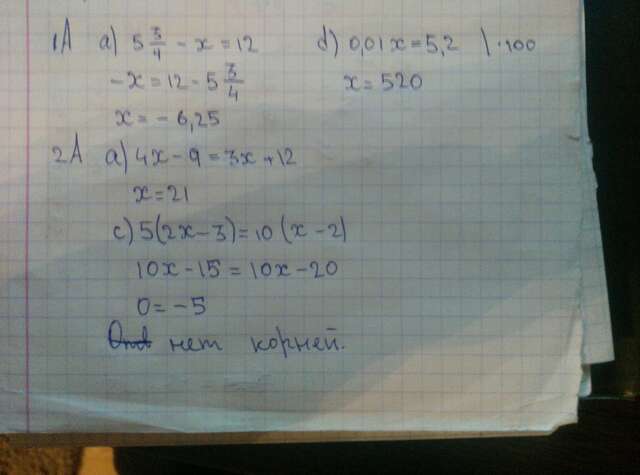 1A a) 5 3/4 - x = 12 d) 0,01x = 5,2 | · 100
-x = 12 - 5 3/4 x = 520
x = - 6,25
2A a) 4x - 9 = 3x + 12
x = 21
c) 5(2x - 3) = 10 (x - 2)
10x - 15 = 10x - 20
0 = -5
нет корней.